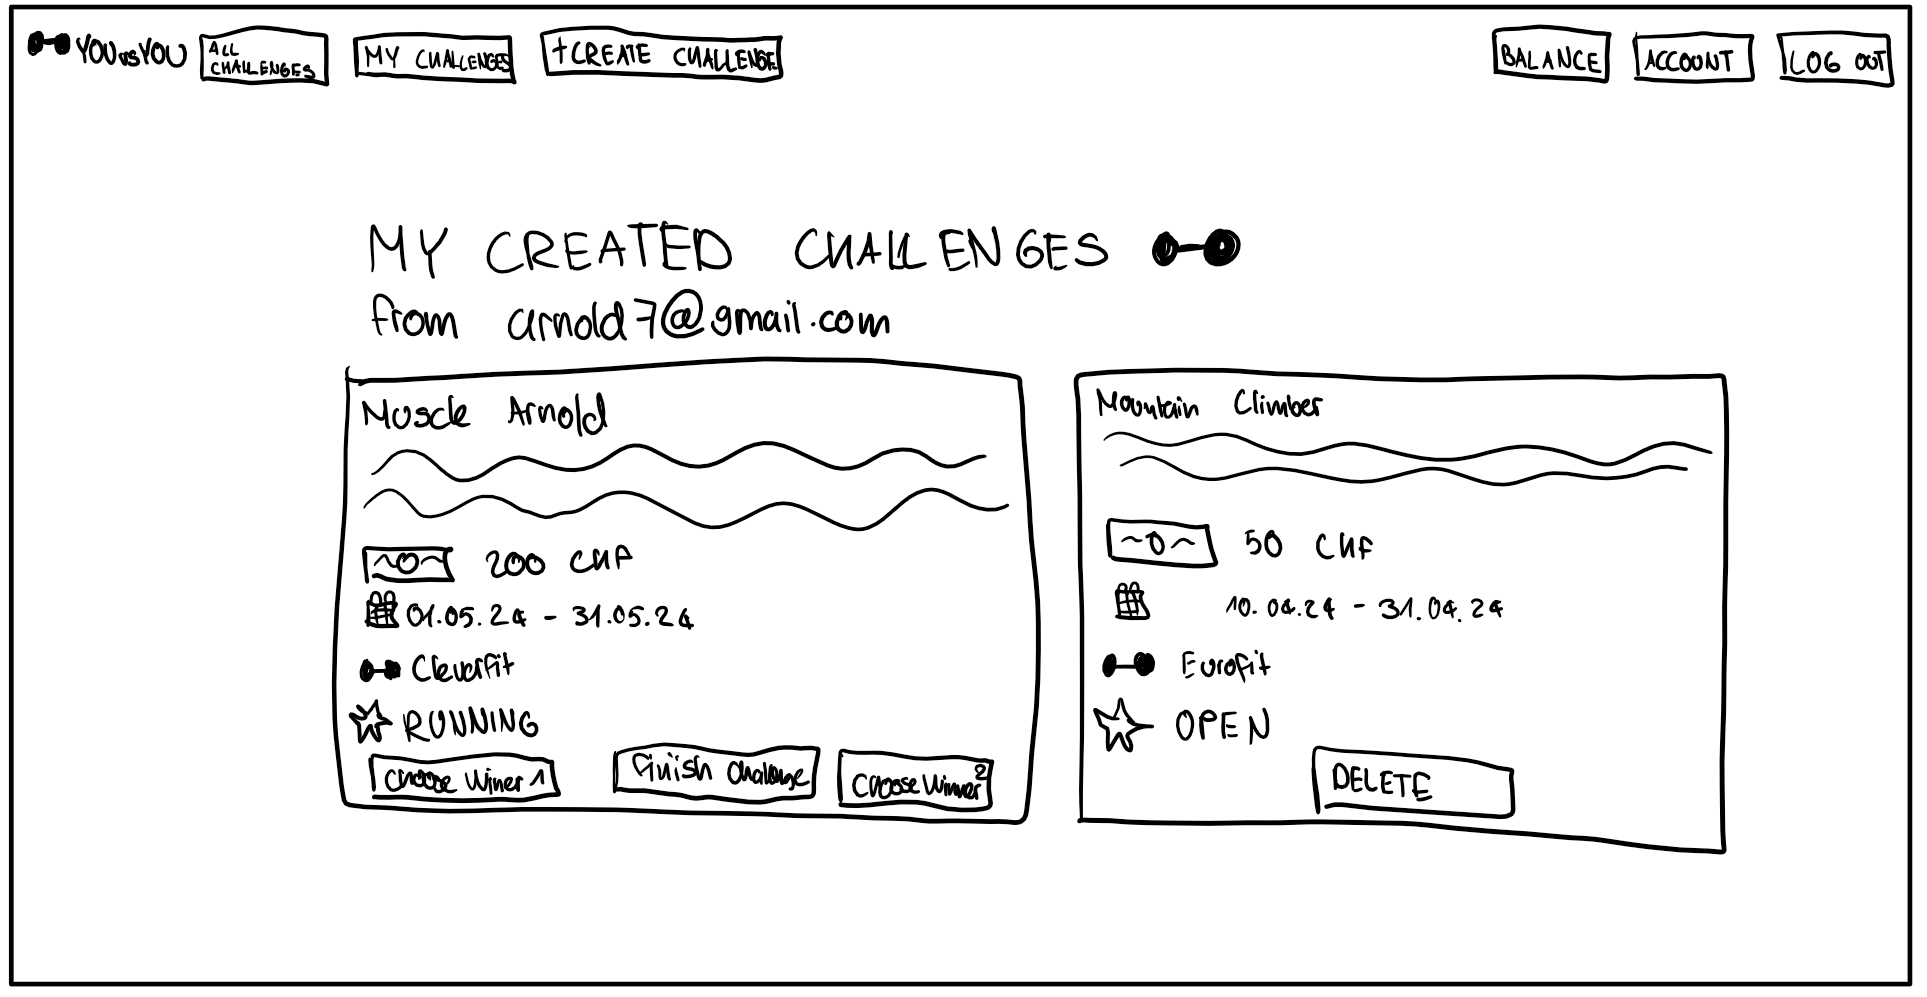 YOU vs YOU
ALL
CHALLENGES
MY CHALLENGES
+CREATE CHALLENGE
BALANCE
ACCOUNT
LOG OUT
MY CREATED CHALLENGES
from arnold7@gmail.com
Muscle Arnold
200 CHF
01.05.24 - 31.05.24
Cleverfit
RUNNING
Choose Winer 1
Finish Challenge
Choose Winner 2
Mountain Climber
50 CHF
10.04.24 - 31.04.24
Eurofit
OPEN
DELETE